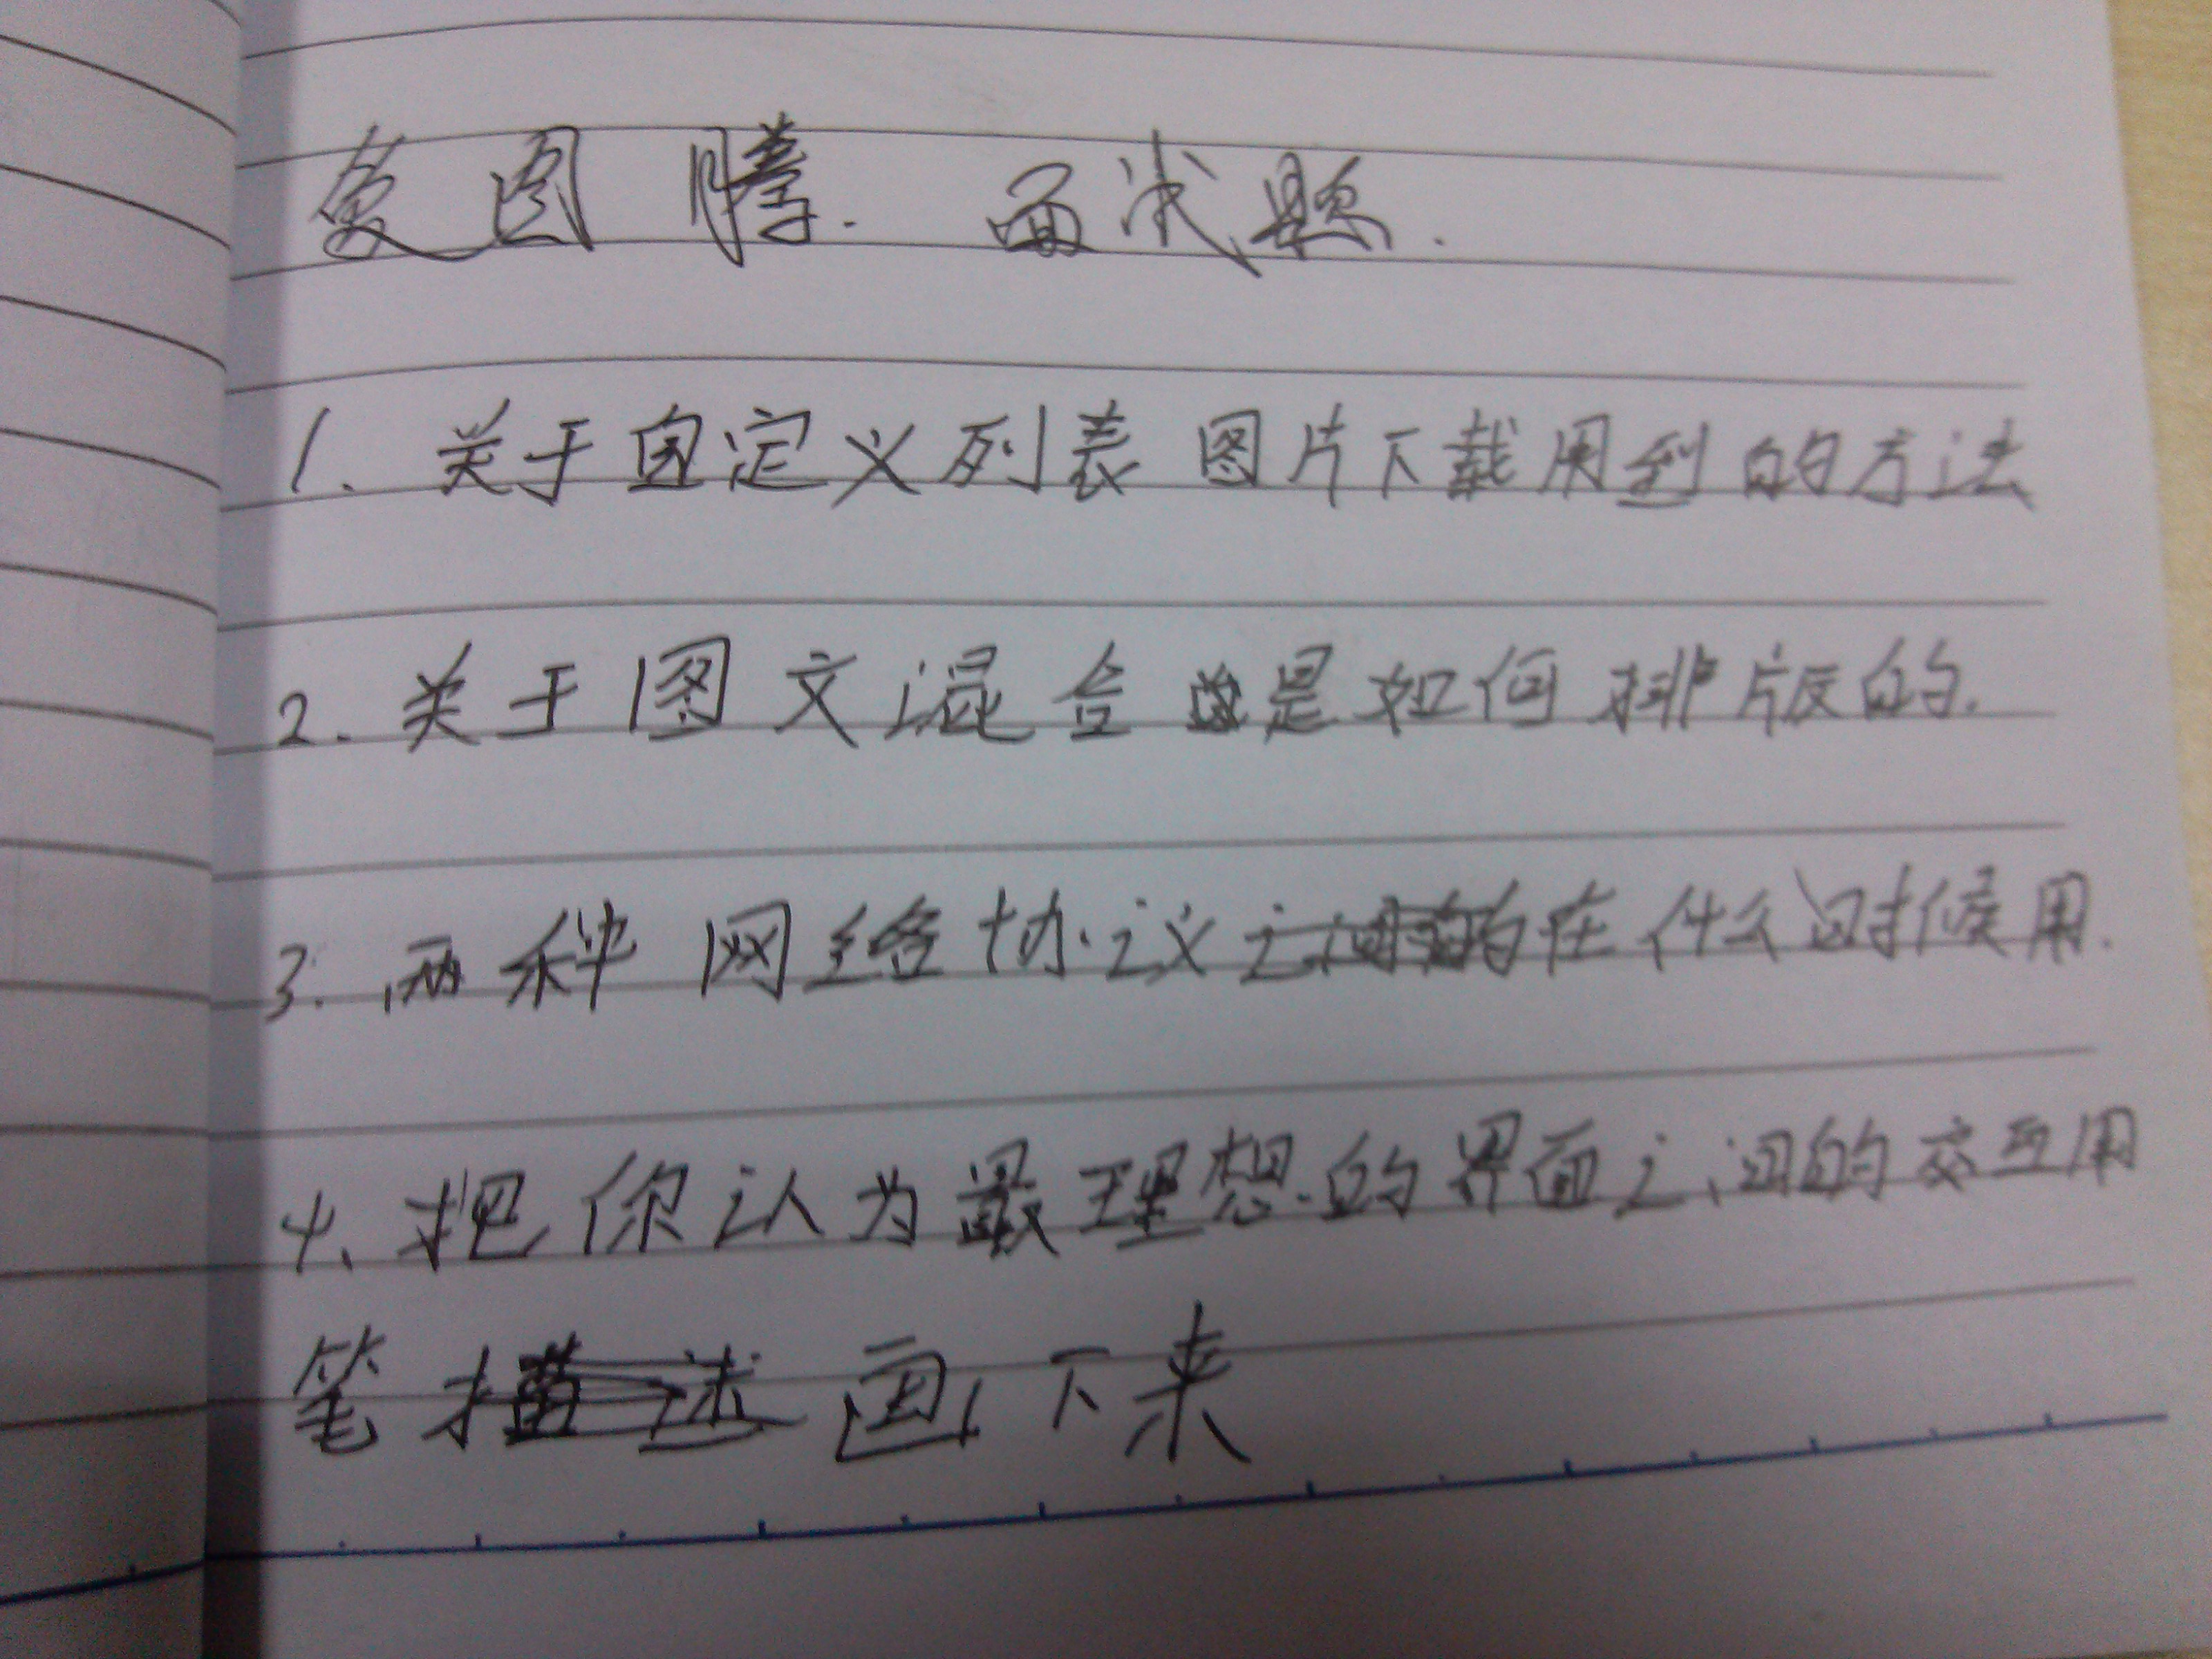 象图腾. 面试题.
1. 关于自定义列表图片下载用到的方法
2. 关于图文混合是如何排版的.
3. 两种网络协议在什么时候用.
4、把你认为最理想的界面之间的交互用
笔画下来